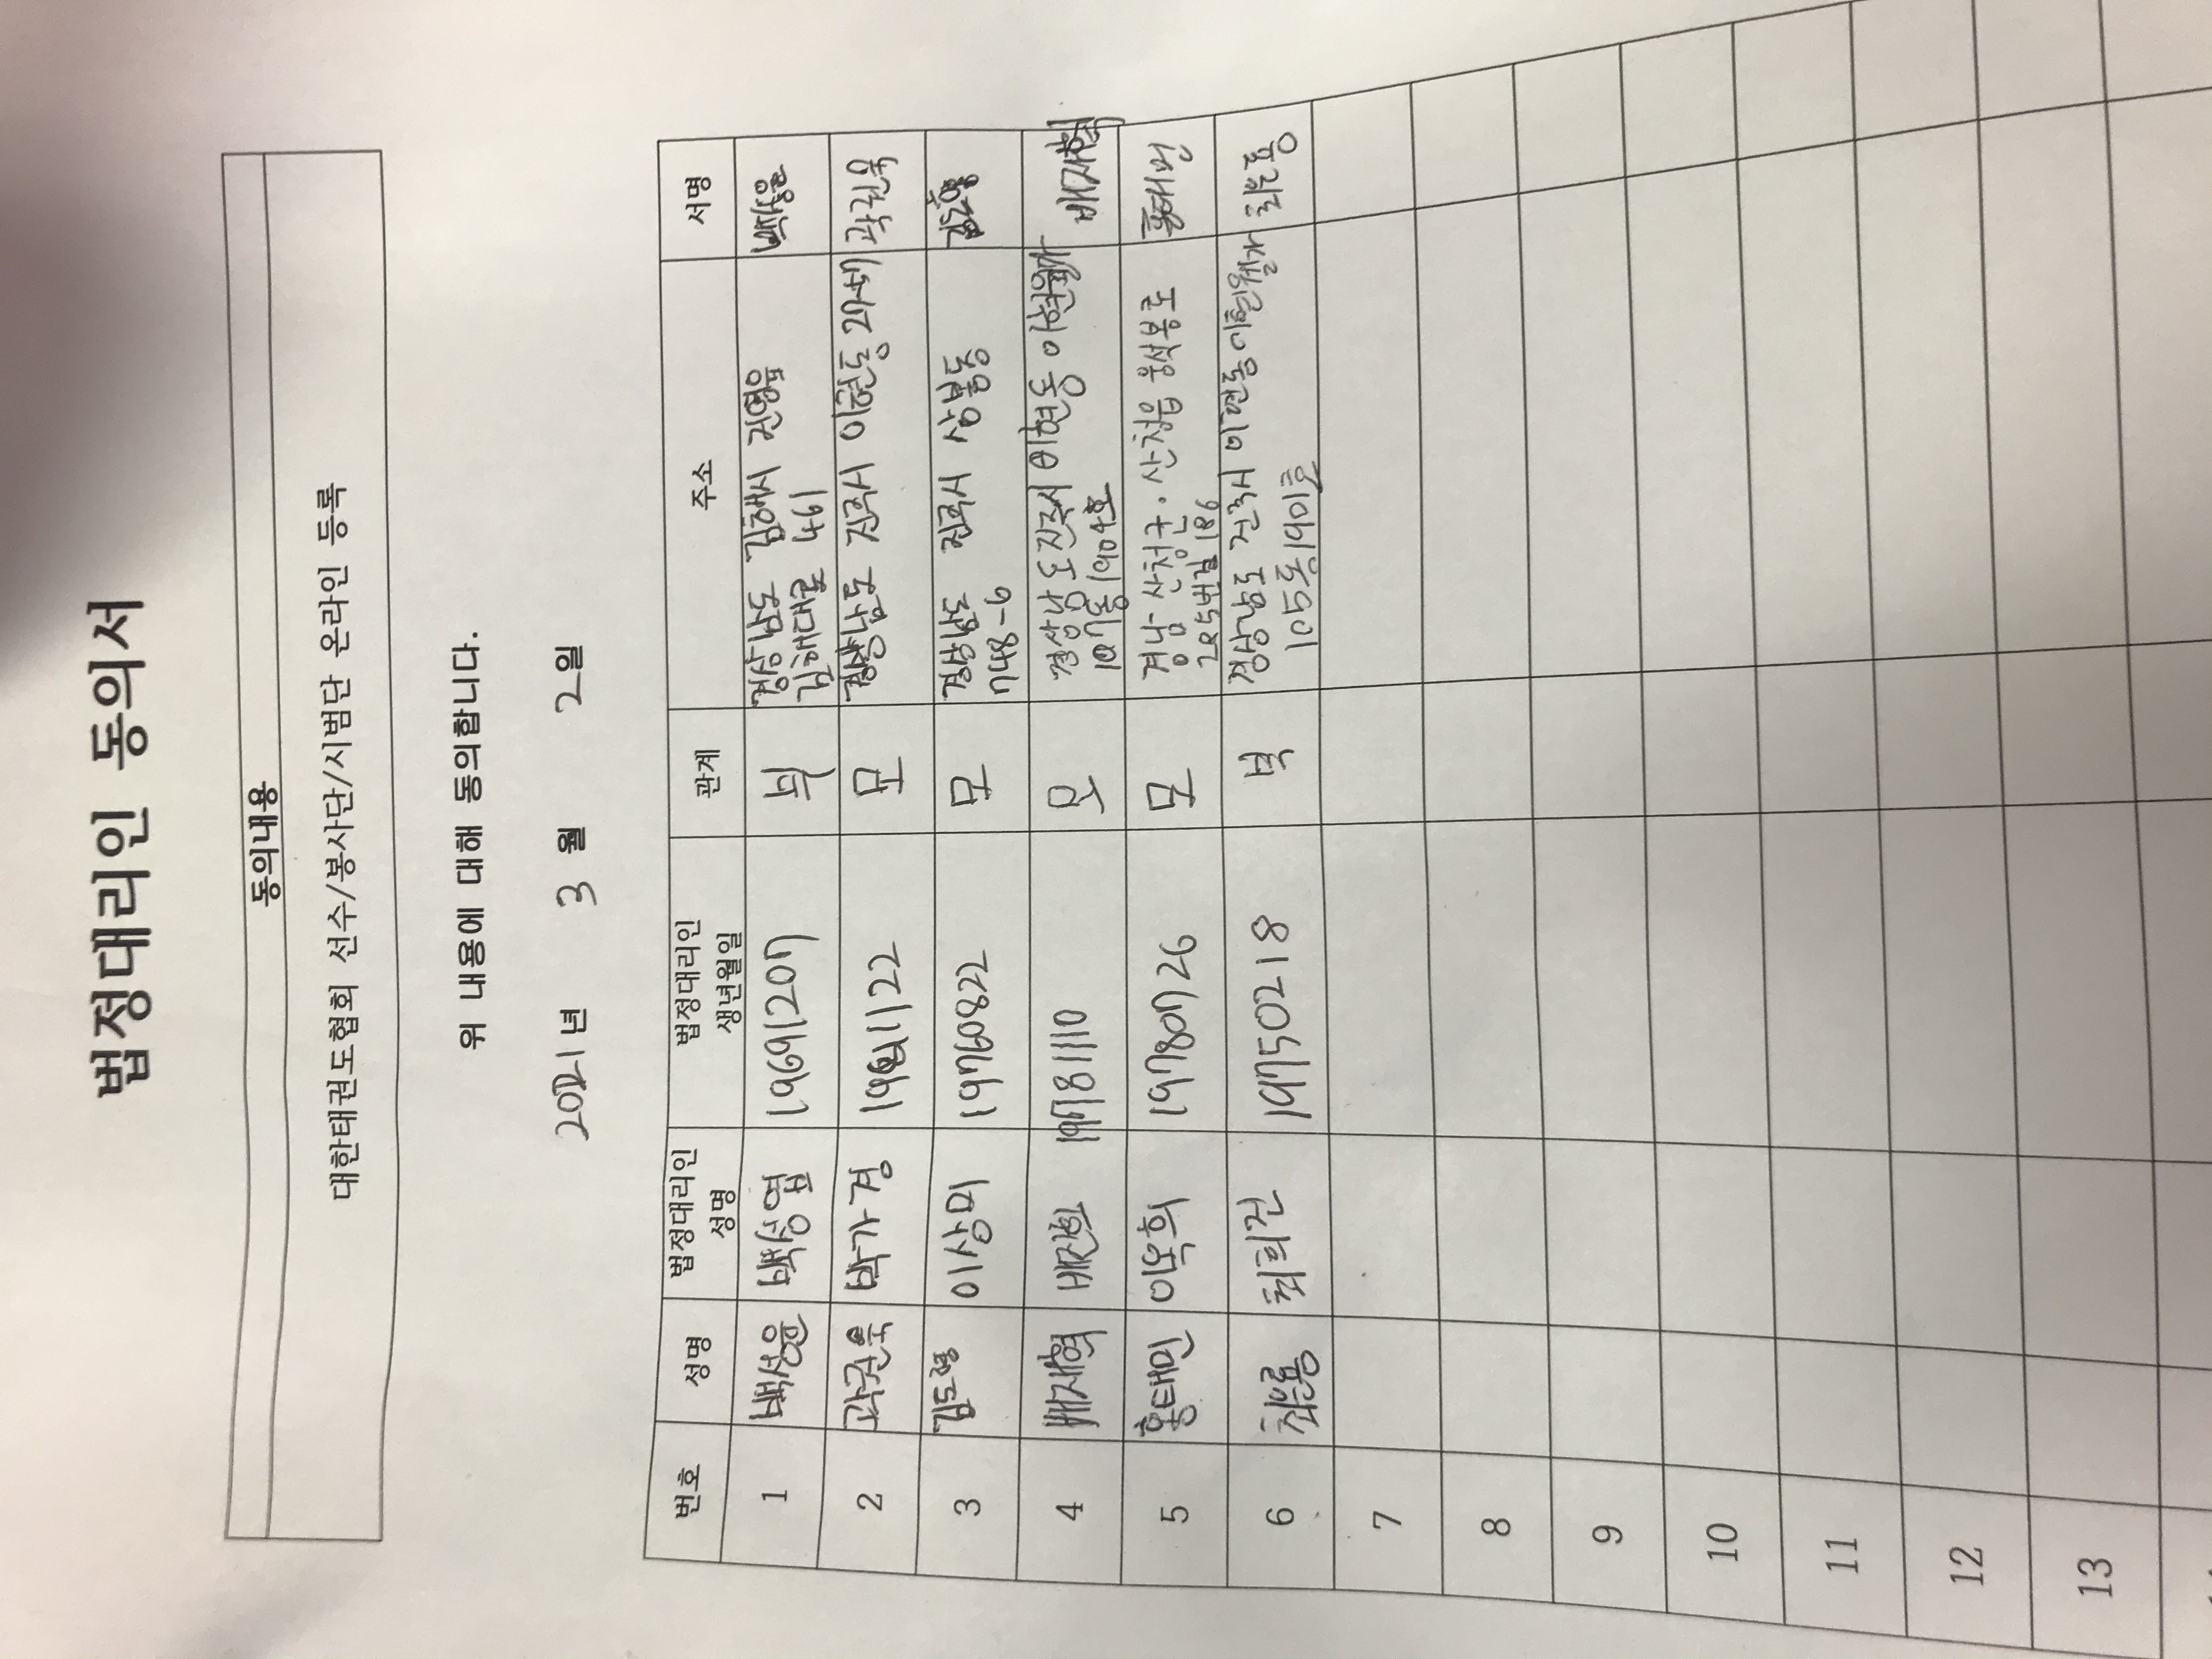 법정대리인 동의서
동의내용
대한태권도협회 선수/봉사단/시범단 온라인 등록
위 내용에 대해 동의합니다.
2021년 3월 2일
번호 성명 법정대리인 성명 법정대리인 생년월일 관계 주소 서명
1 백성윤 백성엽 19691207 부 경상남도 김해시 진영읍
김해대로 461
2 곽권욱 박가경 모 경상남도 진주시 이현동 곽권욱
3 김도형 이상미 19760822 모 경상남도 진주시 상봉동
748-6
4 배재혁 19781110 모 경상남도 진주시 이현동 배재혁
107동 1904호
5 홍태민 이옥희 19780726 모 경남 산청군. 산청읍 웅석봉로 홍태민
285번길 186
6 최희건 19750218 부 경상남도 진주시 이현동
105동 1901호
7
8
9
10
11
12
13